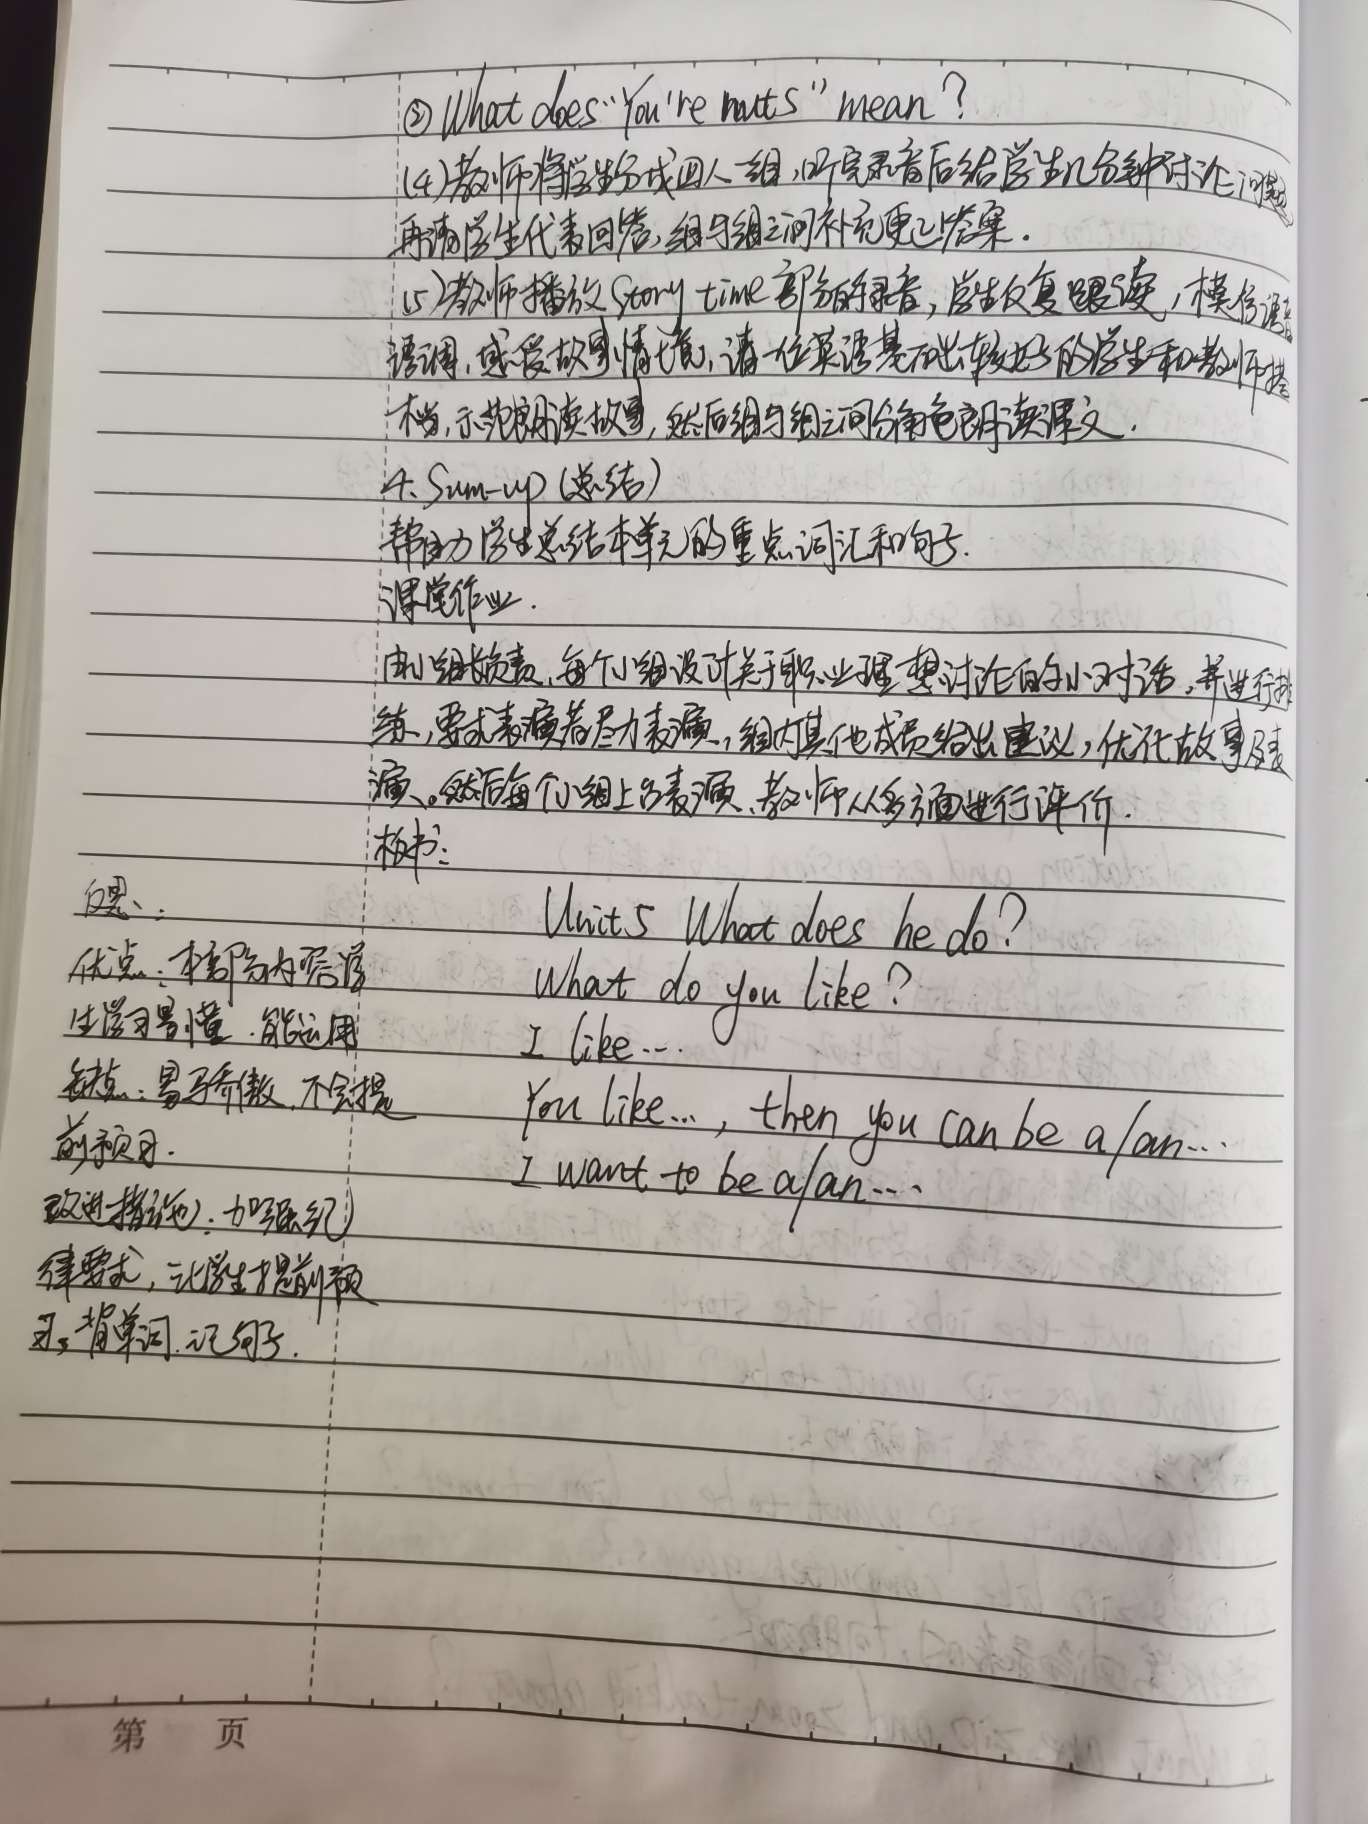 ② What does "You're nuts" mean?
(4)教师将学生分成四人一组,听完录音后给学生几分钟讨论问题
再请学生代表回答,组与组之间补充更正答案.
(5)教师播放Story time部分的录音,学生反复跟读,模仿语音
语调,感受故事情境,请一位英语基础较好的学生和教师搭
档,示范朗读故事,然后组与组之间分角色朗读课文.
4. Sum-up (总结)
帮助学生总结本单元的重点词汇和句子.
课堂作业.
由小组长负责,每个小组设计关于职业理想讨论的小对话,并进行排
练,要求表演者尽力表演,组内其他成员给出建议,优化故事及表
演。然后每个小组上台表演,教师从多方面进行评价.
板书:
Unit5 What does he do?
What do you like?
I like...
You like..., then you can be a/an...
I want to be a/an...
反思:
优点:本部分内容学
生学习易懂.能运用
缺点:易骄傲,不会提
前预习.
改进措施:加强纪
律要求,让学生提前预
习,背单词.记句子.
第 页